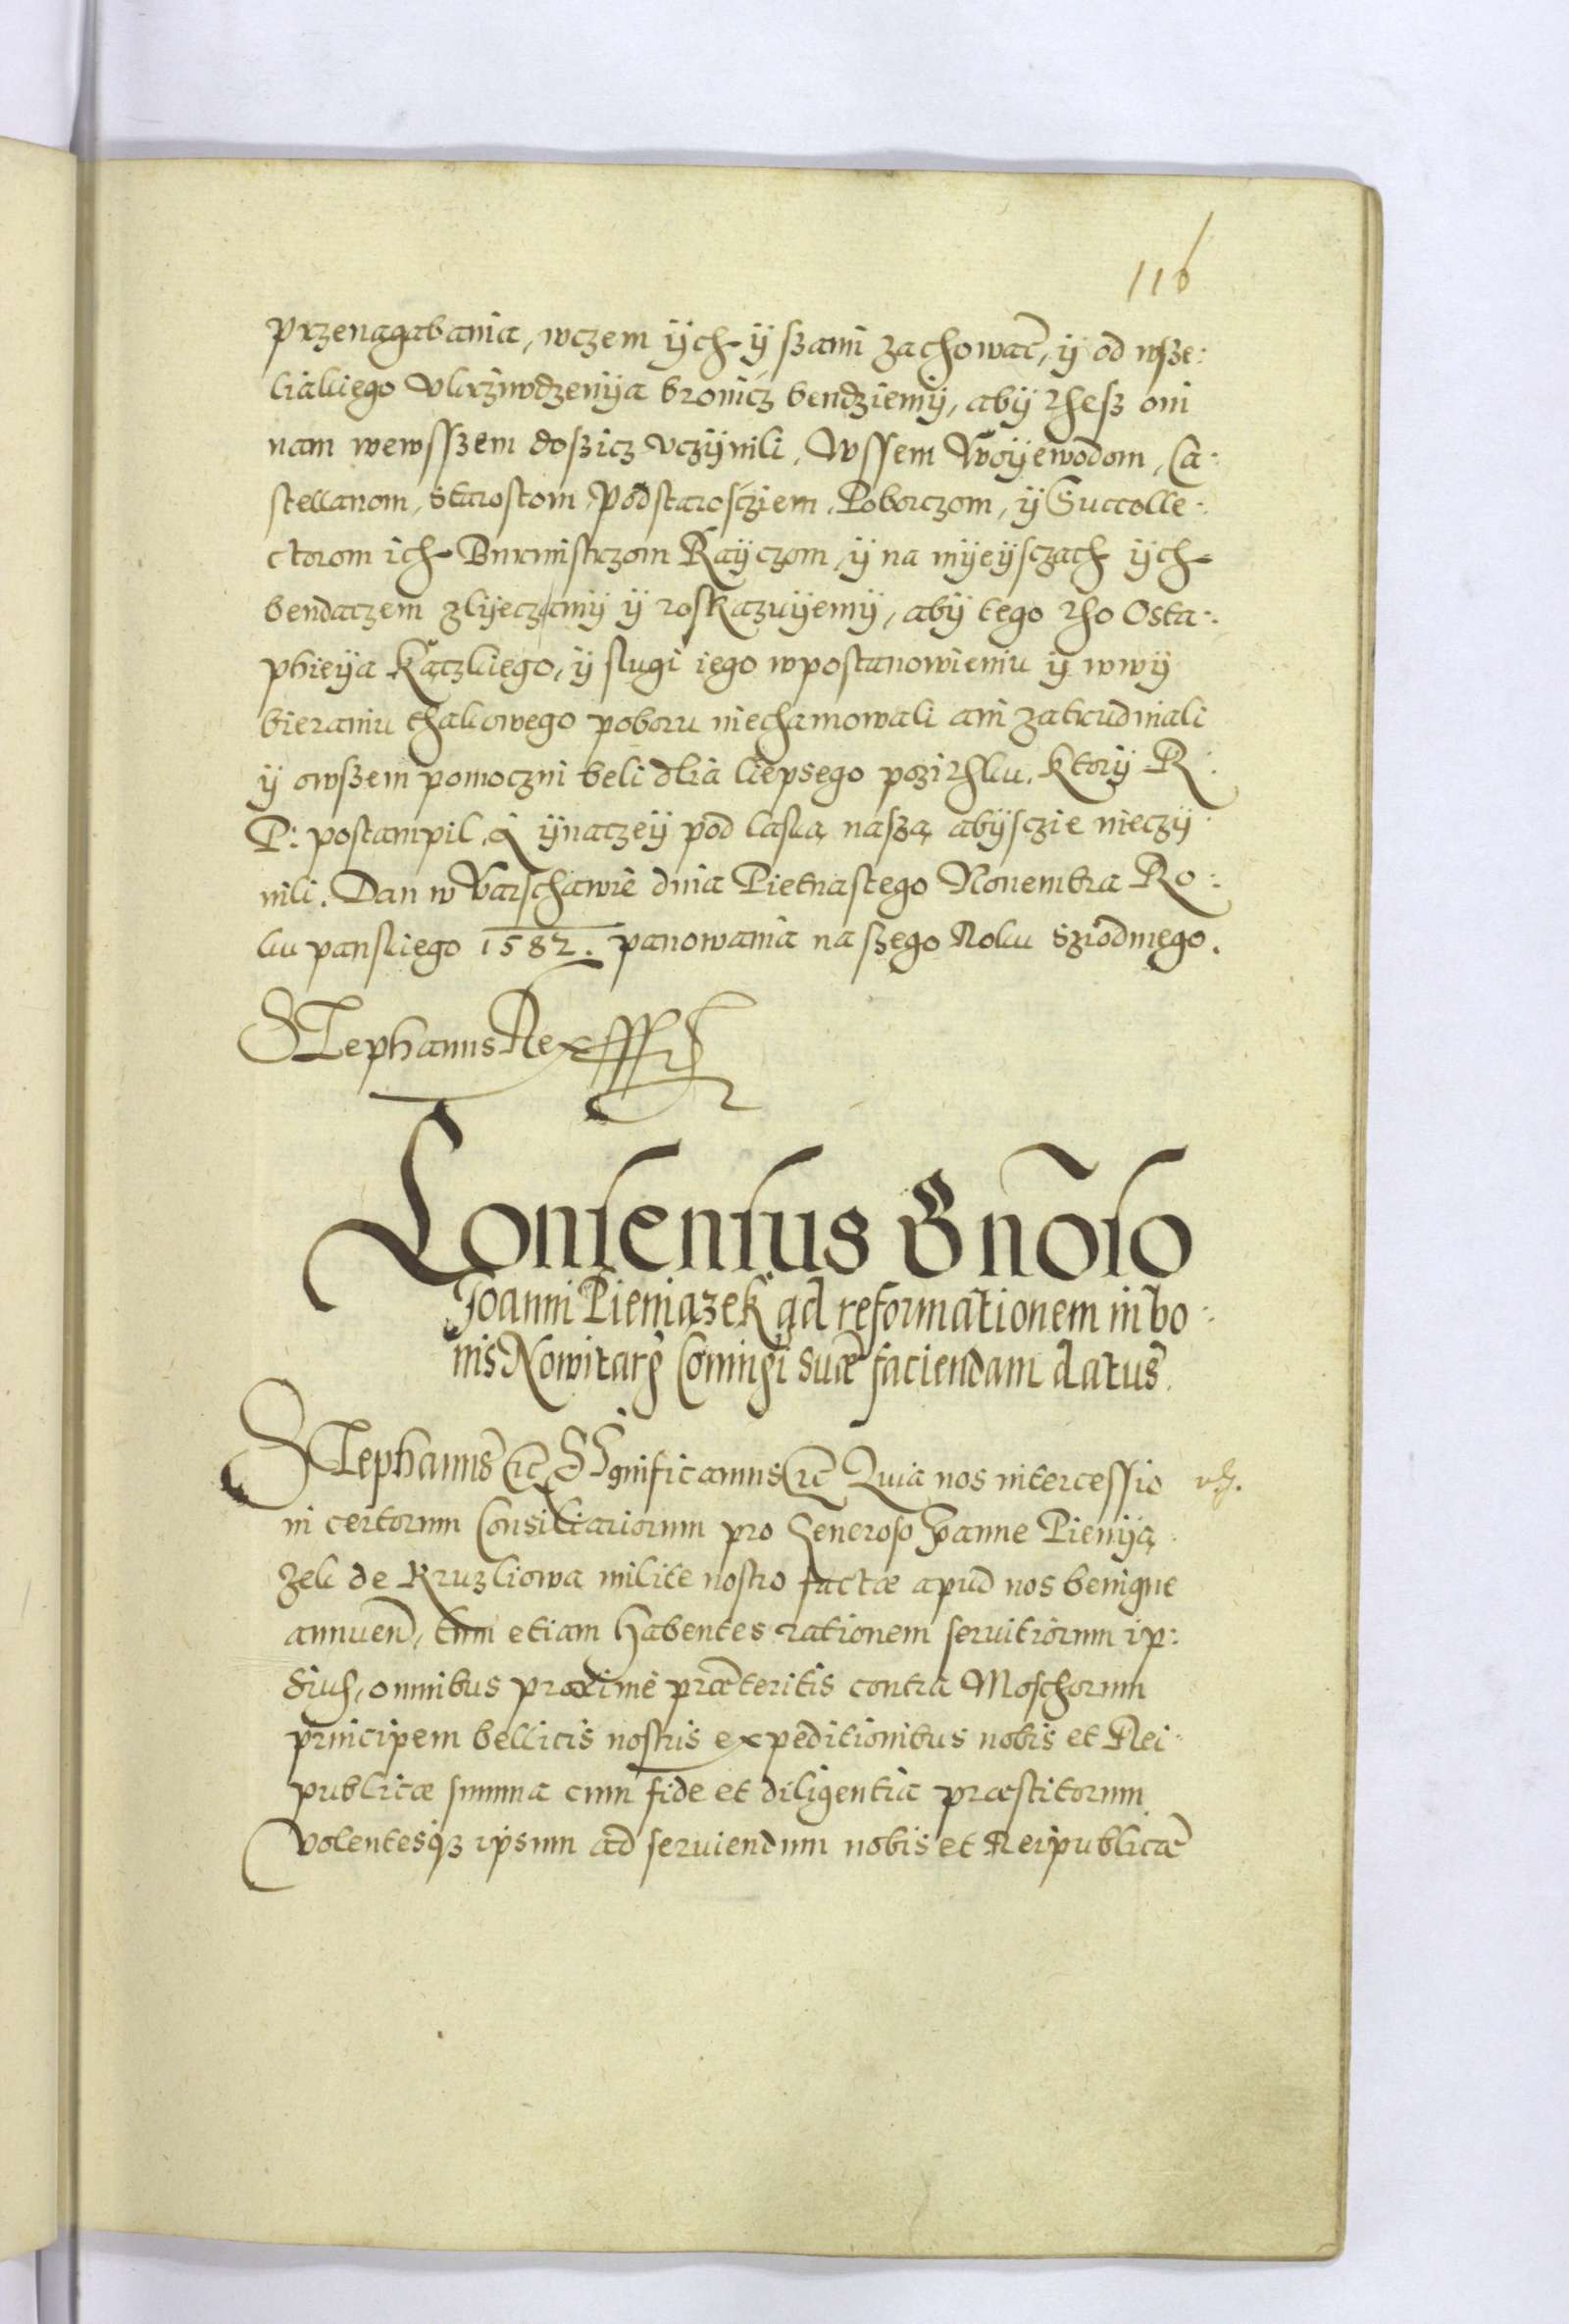 116
przenagabania, wczem ÿch ÿ szami zachowac, ÿ od wsze:
liakiego vkrziwdzenÿa bronicz bendziemÿ, abÿ thesz oni
nam wewsszem doszicz vczÿnili, Wssem Woÿewodom, Ca:
stellanom, Starostom, Podstarosćziem, Poborczom, ÿ Succolle:
ctorom ich Burmistrzom Raÿczom, ÿ na mÿeÿsczach ÿch
bendaczem zlÿeczamÿ ÿ roskazuÿemÿ, abÿ tego tho Osta:
phieÿa Kaczkiego, ÿ slugi iego wpostanowieniu ÿ wwÿ
bieraniu thakowego poboru niechamowali ani zatrudniali
ÿ owszem pomoczni beli dlia liepsego pozithku, Ktorÿ R:
P: postampil, A ÿnaczeÿ pod laską naszą abÿsczie nieczÿ:
nili. Dan w Varschawie dnia Pietnastego Nouembra Ro:
ku panskiego 1582. panowania naszego Roku Sziodmego.
Stephanus Rex
Consensus Gnoso
Joanni Pieniązek ad reformationem in bo:
nis Nowitarg Coniugi suæ faciendam datus.
Stephanus etc Significamus etc Quia nos intercessio
ni certorum Consiliariorum pro Generoso Joanne Pienÿą
zek de Kruzliowa milite nostro factæ apud nos benigne
annuen, tum etiam habentes rationem seruitiorum ip:
sius, omnibus proxime præteritis contra Moschorum
principem bellicis nostris expeditionibus nobis et Rei
publicæ summa cum fide et diligentia præstitorum
volentesq3 ipsum ad seruiendum nobis et Reipublicæ